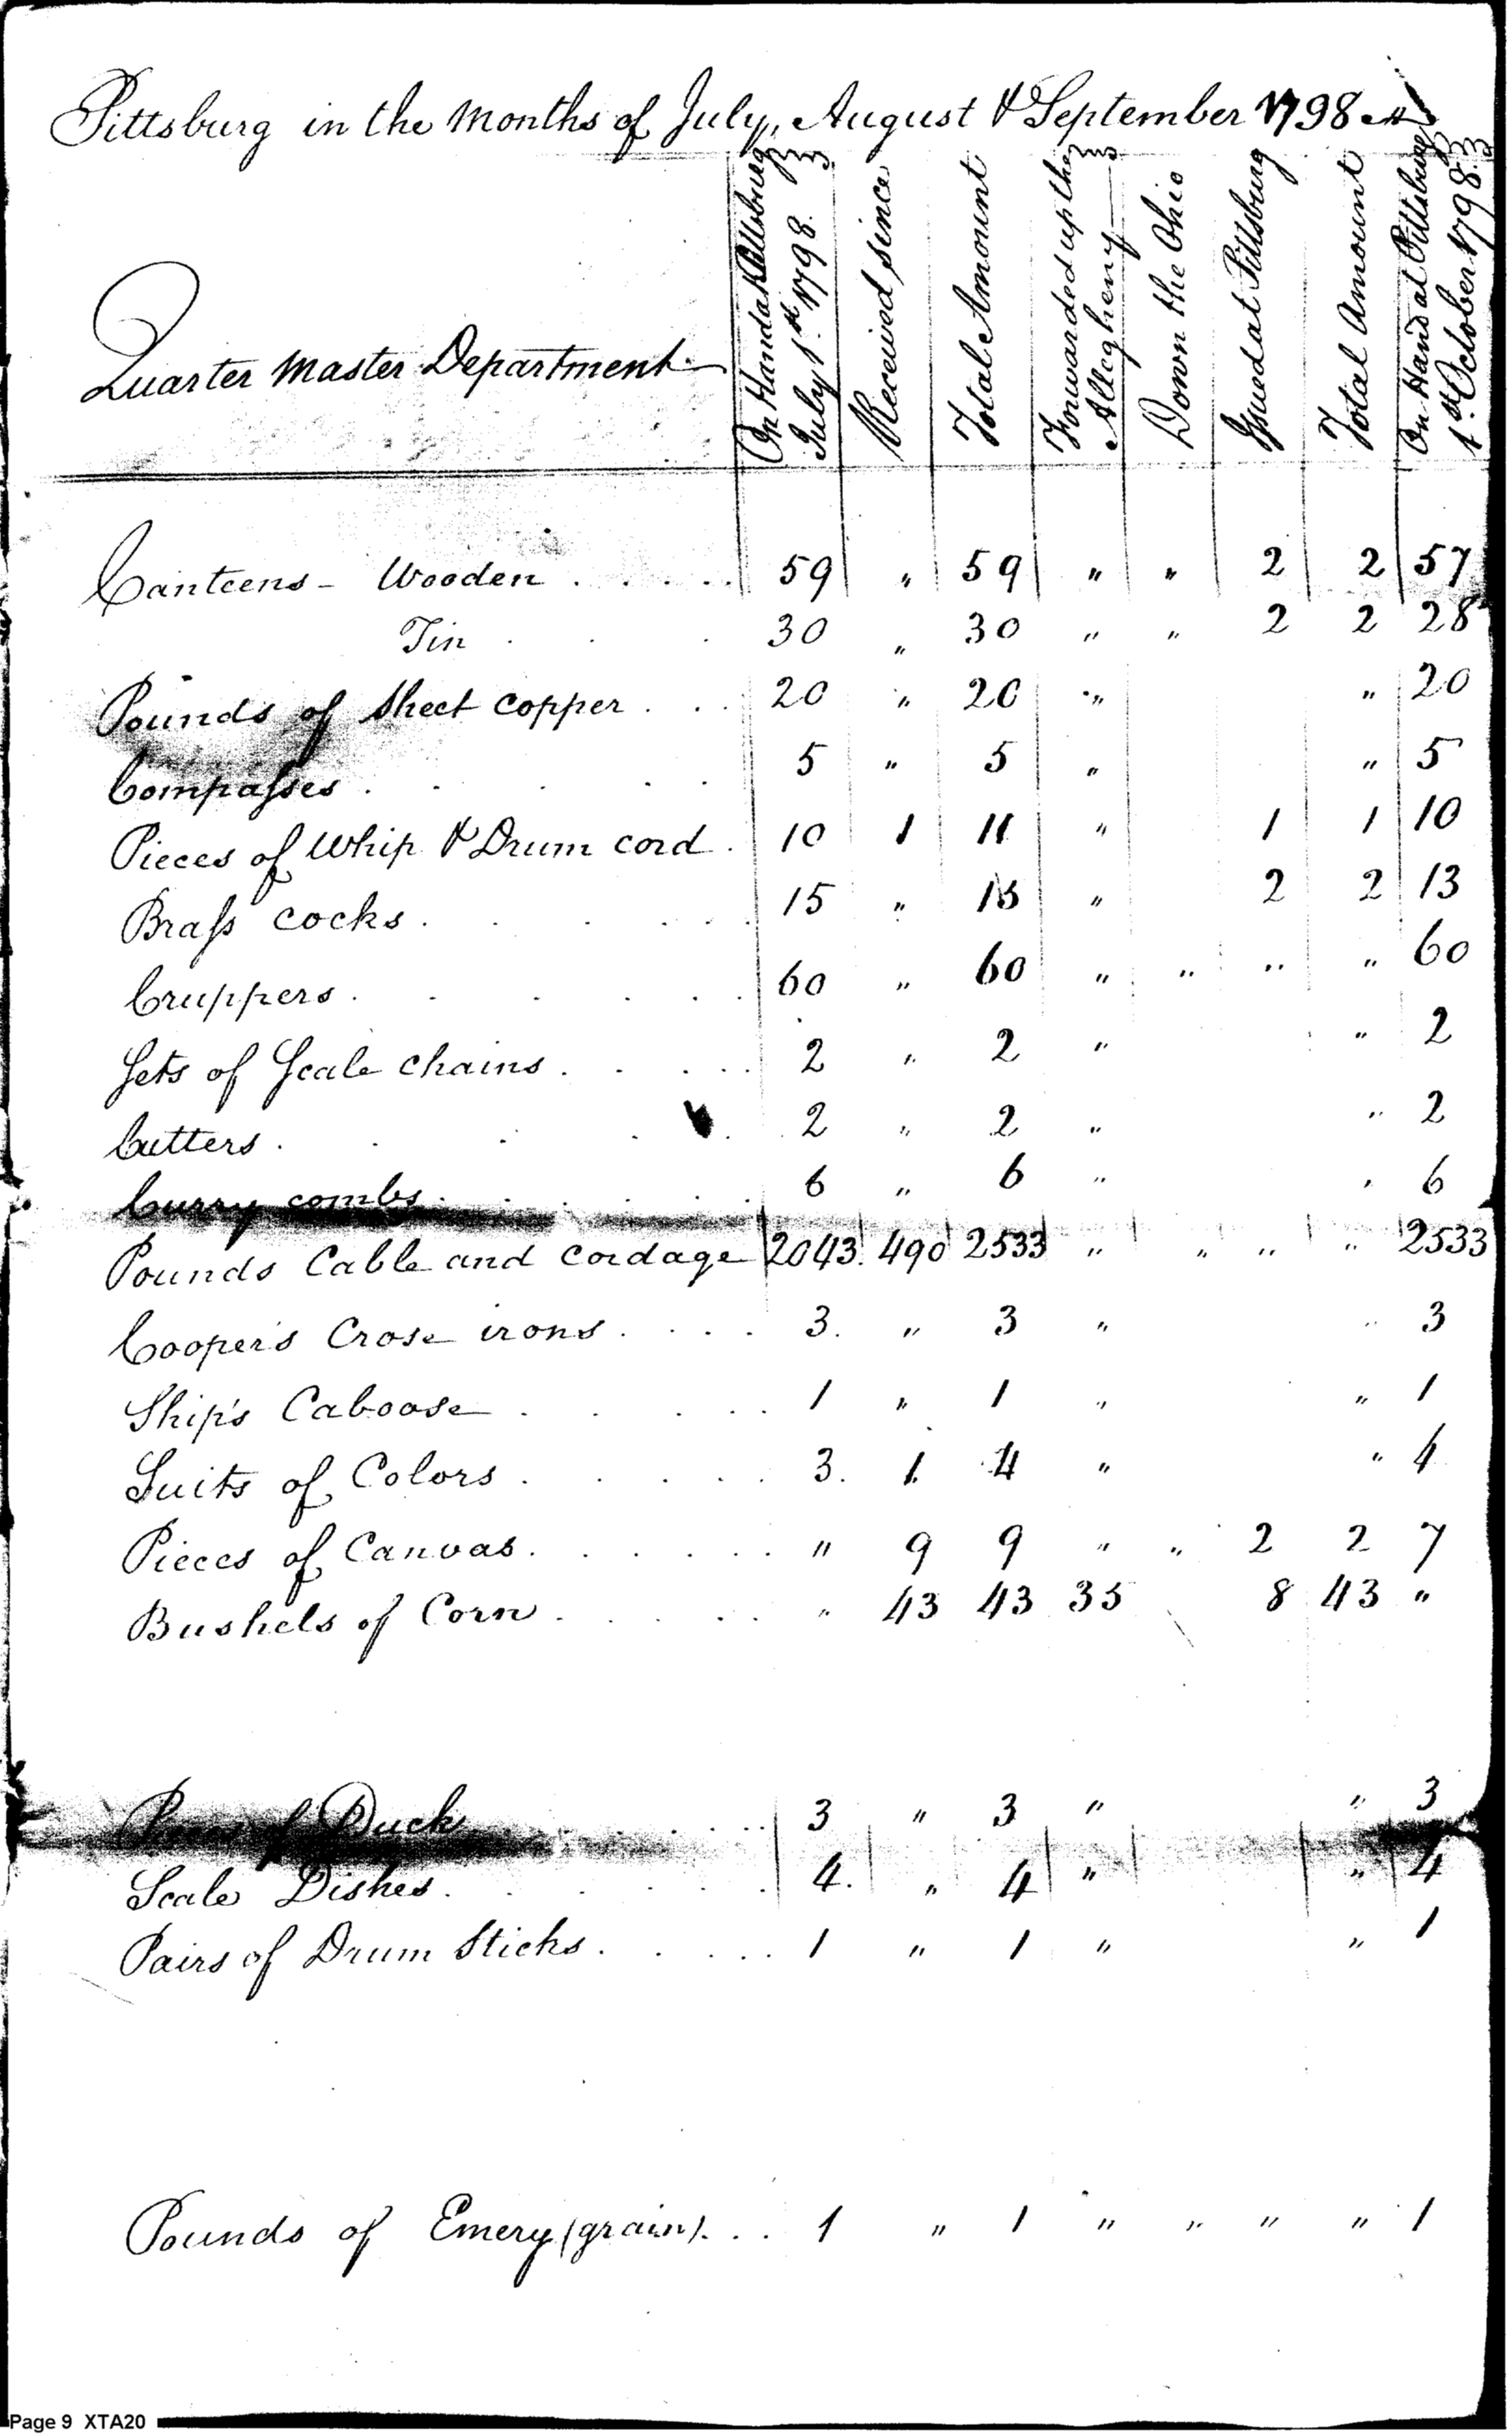 Pittsburg in the Months of July, August & September 1798
Quarter Master Department
On Hand at Pittsburg July 1st. 1798.
Received since
Total Amount
Forwarded up the Allegheny
Down the Ohio
Issued at Pittsburg
Total Amount
On Hand at Pittsburg 1st. October 1798.
Canteens - Wooden . . . . . 59 " 59 " " 2 2 57
Tin . . . 30 " 30 " " 2 2 28
Pounds of Sheet copper . . . 20 " 20 " " 20
Compasses . . . . . 5 " 5 " " 5
Pieces of Whip & Drum cord . 10 1 11 " 1 1 10
Brass cocks . . . . . . 15 " 15 " 2 2 13
Cruppers . . . . . . . 60 " 60 " " " " 60
Sets of Scale chains . . . . . 2 " 2 " " 2
Cutters . . . . . 2 " 2 " " 2
Curry combs . . . . . . 6 " 6 " " 6
Pounds Cable and Cordage 2043. 490 2533 " " " " 2533
Cooper's Crose irons . . . . 3. " 3 " " 3
Ship's Caboose . . . . . 1 " 1 " " 1
Suits of Colors . . . . . 3. 1. 4 " " 4
Pieces of Canvas . . . . . . " 9 9 " " 2 2 7
Bushels of Corn . . . . . . " 43 43 35 8 43 "
Pieces of Duck . . . . . 3 " 3 " " 3
Scale Dishes . . . . . . 4. " 4 " " 4
Pairs of Drum Sticks . . . . . 1 " 1 " " 1
Pounds of Emery (grain) . . . 1 " 1 " " " " 1
Page 9 XTA20